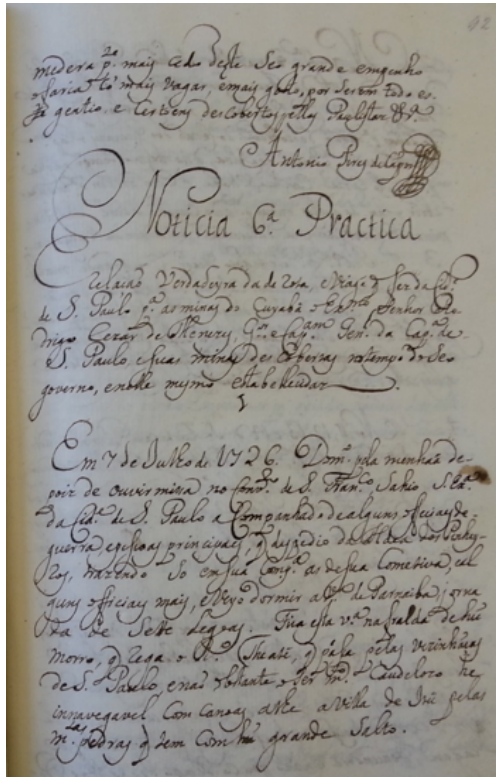 92
medera p.ª mais cedo deste seo grande emgenho
e faria tº mais vagar, e mais gosto, por serem todo es-
te gentio e certoens descobertos pellos Paulistas &ª.
Antonio Pires de Campos
Noticia 6.ª Practica
E relação Verdadeyra da derota, e viage q̃ fez da Cid.e
de S. Paulo p.ª as minas do Cuyabá o Ex.mo Senhor Ro-
drigo Cezar de Menezes, G.or e Cap.am Gen.al da Cap.ª de
S. Paulo e suas minas descubertas no tempo do seo
governo, e nelle mesmo estabelecidas.
1
Em 7 de Julho de 1726. Dom.º pela menhãa de-
pois de ouvir missa no Conv.to de S. Fran.co Sahio S. Ex.ª
da Cid.e de S. Paulo acompanhado de alguns officiaes de
guerra, e pessoas principaes, q̃ despedio da
trazendo só em sua Comp.ª as de sua Cometiva, e al-
guns officiaes mais, e veyo dormir a V.ª de Parnaiba, jorna
da de sette legoas. Fica esta v.ª na fralda de hũ
morro, q̃ rega o R.º Theaté, q̃ paça pelas vezinhanças
de S. Paulo, e nao obstante o ser m.to Caudelozo he
innavegavel com canoas athe a villa de Itú pelas
m.tas pedras q̃ tem com hũ grande Salto.